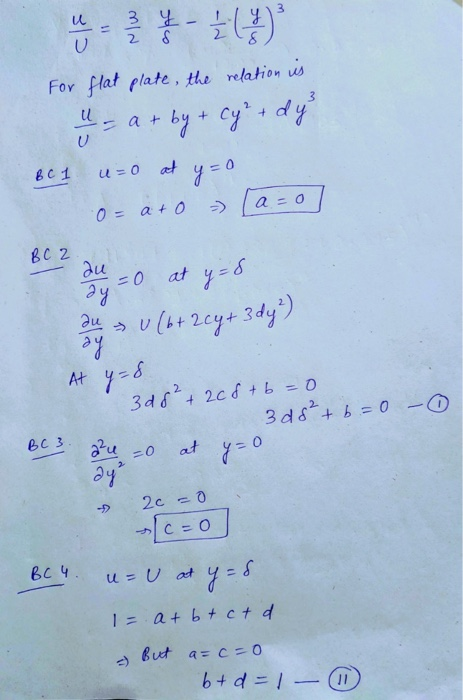 u/U = 3/2 y/δ - 1/2 (y/δ)³
For flat plate, the relation is
u/U = a + by + cy² + dy³
BC 1 u=0 at y=0
0 = a+0 ⇒ a = 0
BC 2
∂u/∂y = 0 at y=δ
∂u/∂y ⇒ U(b+2cy+3dy²)
At y=δ
3dδ² + 2cδ + b = 0
3dδ² + b = 0 — (I)
BC 3. ∂²u/∂y² = 0 at y=0
⇒ 2c = 0
⇒ c = 0
BC 4. u = U at y=δ
1 = a+b+c+d
⇒ But a=c=0
b+d=1 — (II)